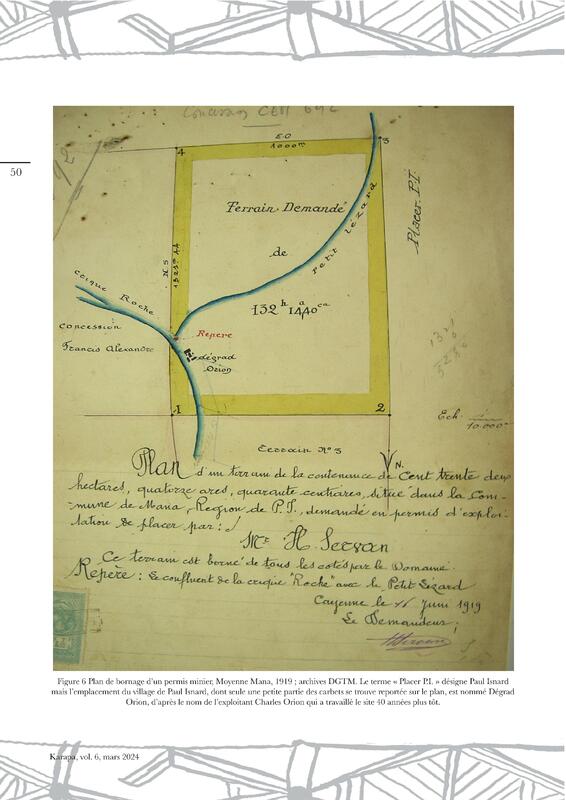 50
Concession CEM 692
92
E.O
1000m
4
3
Terrain Demandé
de
132 h 14a 40ca
N.S
1323m 44
petit lézard
Placer P.I.
crique Roche
Concession
Francis Alexandre
Repère
dégrad
Orion
1
2
Ech
10.000
Terrain N° 3
N.
Plan d'un terrain de la contenance de Cent trente deux
hectares, quatorze ares, quarante centiares, situé dans la Com-
mune de Mana, Region de P.I., demandé en permis d'exploi-
tation de placer par :
Mr H. Servan
Ce terrain est borné de tous les cotés par le Domaine.
Repère : Le confluent de la crique "Roche" avec le Petit Lézard
Cayenne le 11 Juni 1919
Le Demandeur,
Figure 6 Plan de bornage d'un permis minier, Moyenne Mana, 1919 ; archives DGTM. Le terme « Placer P.I. » désigne Paul Isnard
mais l'emplacement du village de Paul Isnard, dont seule une petite partie des carbets se trouve reportée sur le plan, est nommé Dégrad
Orion, d'après le nom de l'exploitant Charles Orion qui a travaillé le site 40 années plus tôt.
Karapa, vol. 6, mars 2024